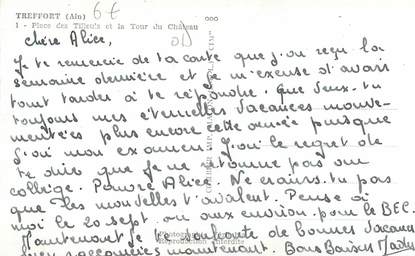 TREFFORT (Ain)
6 €
1 - Place des Tilleuls et la Tour du Château
chère Alice,
Je te remercie de ta carte que j'ai reçu la
semaine dernière et je m'excuse d'avoir
tant tardée à te répondre. Que veux-tu
toujours mes éternelles vacances mouve-
mentées plus encore cette année puisque
j'ai mon examen. J'ai le regret de
te dire que je ne retourne pas au
collège. Pauvre Alice. Ne crains-tu pas
que les nouvelles t'avalent. Pense à
moi le 20 sept. ou aux environ pour le BEC.
Maintenant je te souhaite de bonnes vacances
maintenant. Bons Baisers
Reproduction Interdite